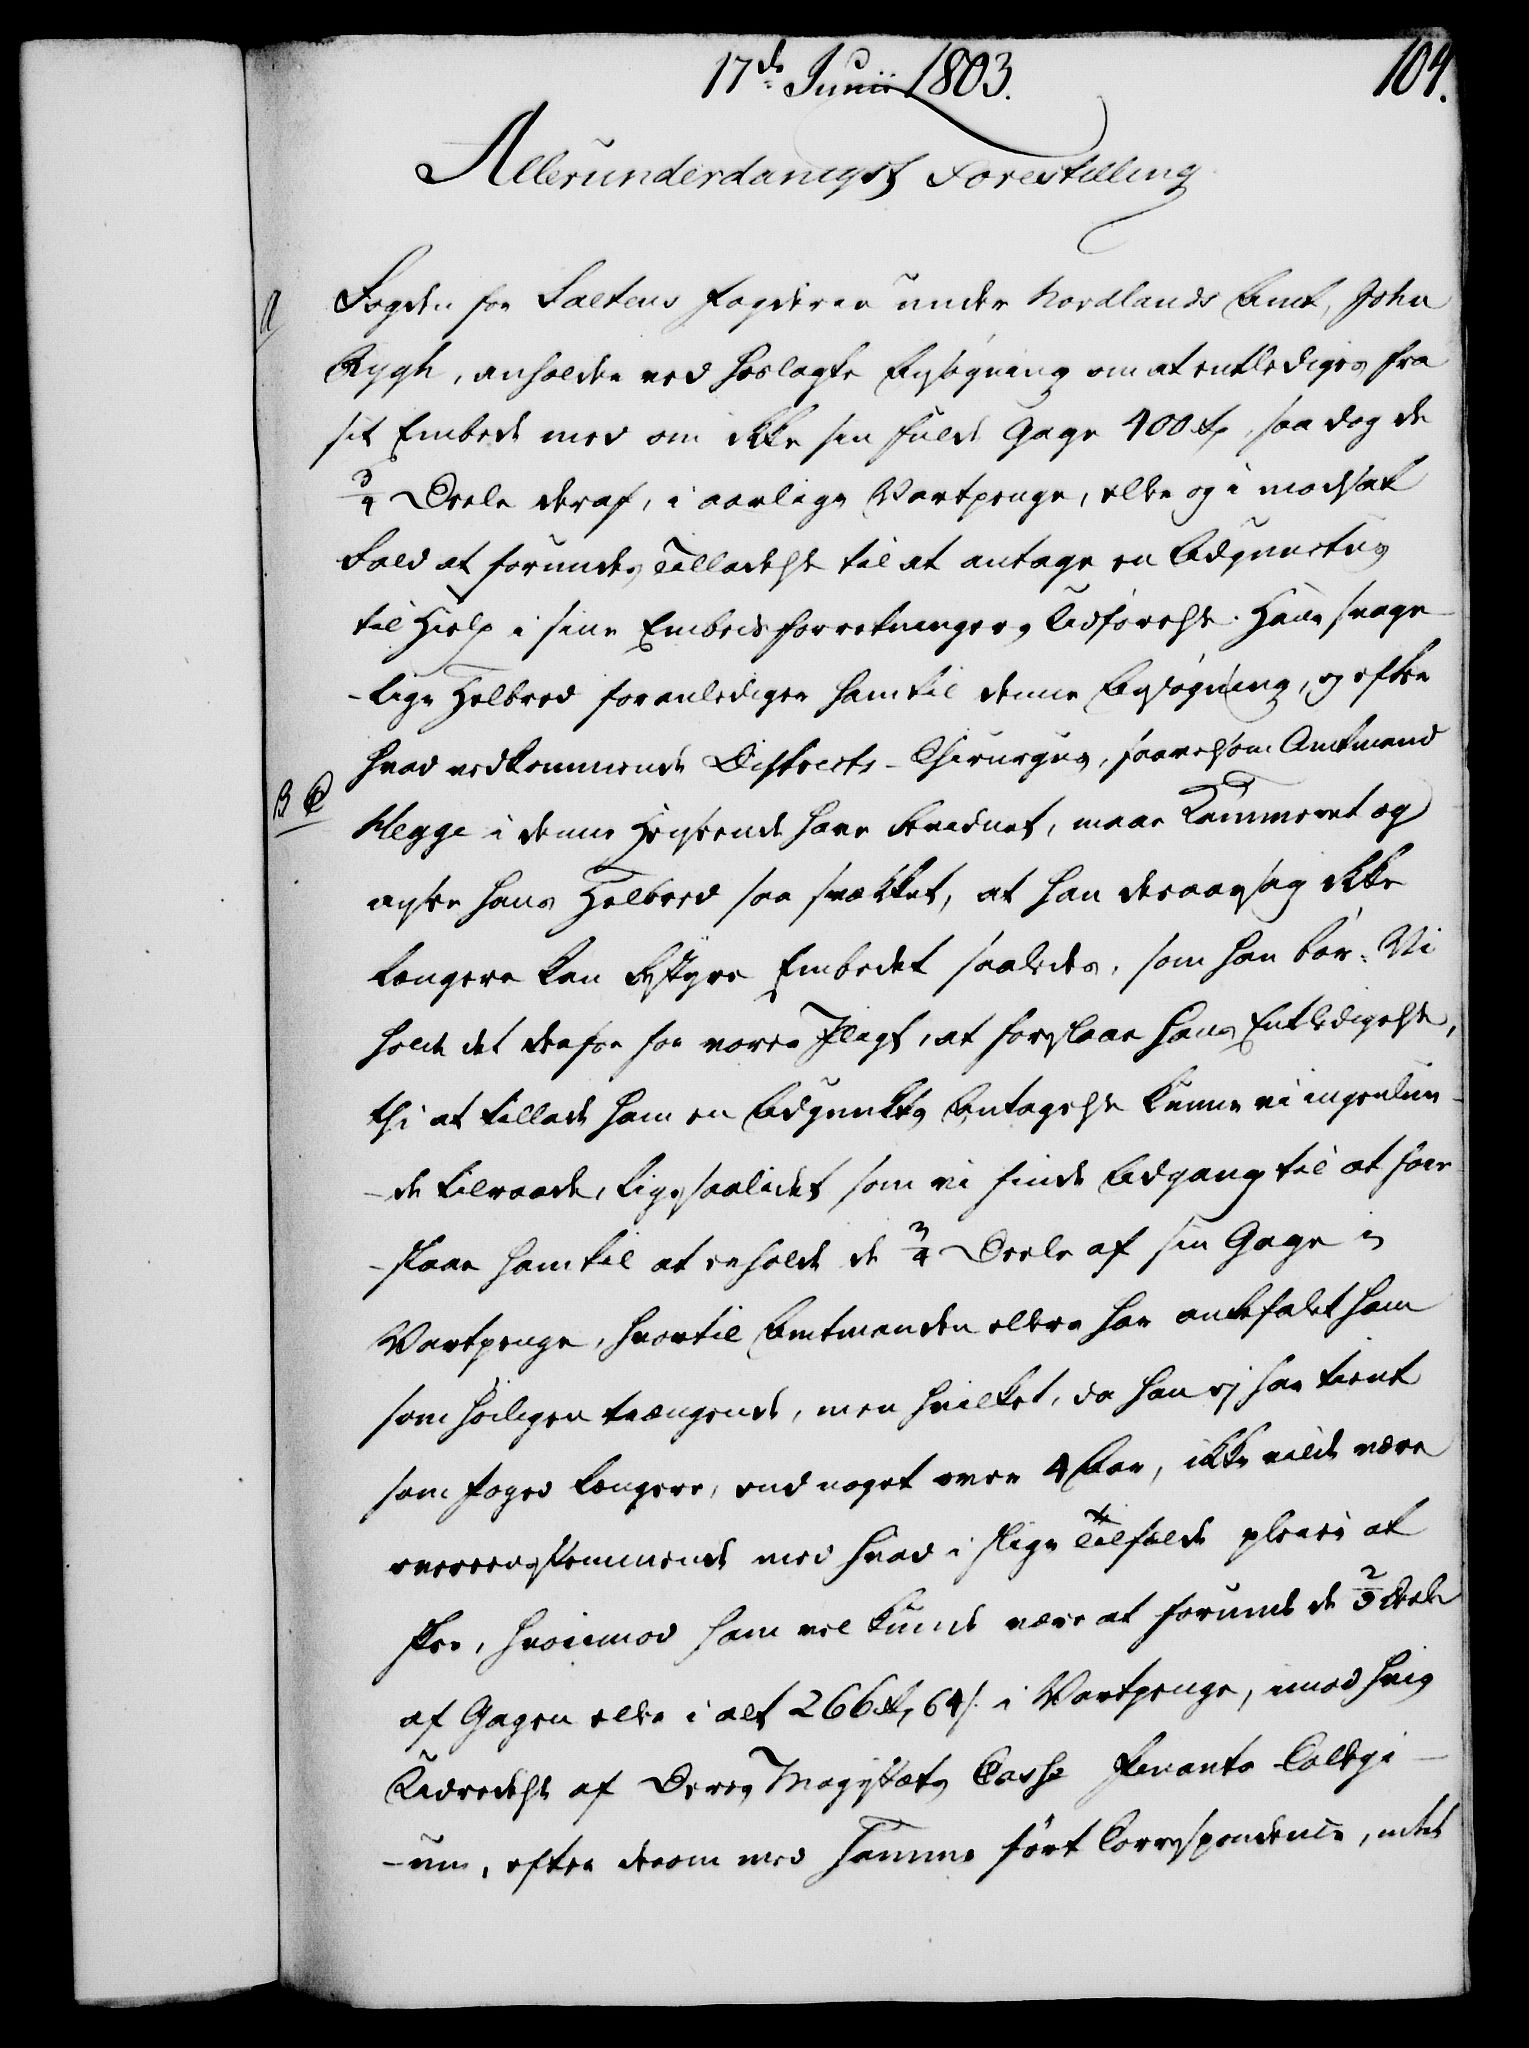 17de Junii 1803.
104.
Allerunderdanigst Forestilling
A
Fogden for Saltens Fogderie under Nordlands Amt, John
Rygh, anholder ved hoslagte Ansøgning om at entlediges fra
sit Embede med om ikke sin fulde Gage 400 rd, saa dog de
3/4 Deele deraf, i aarlige Vartpenge, eller og i modsat
Fald at forundes Tilladelse til at antage en Adjunctus
til Hielp i sine Embedsforretningers Udførelse. Hans svage-
-lige Helbred foranlediger ham til denne Ansøgning, og efter
hvad vedkommende Districts-Chirurgus, saavelsom Amtmand
B C
Hegge i denne Henseende have bevidnet, maae Kammeret og
ansee hans Helbred saa svækket, at han deraarsag ikke
længere kan bestyre Embedet saaledes, som han bør. Vi
holde det derfor for vores Pligt, at foreslaae hans Entledigelse,
thi at tillade ham en Adjuncts Antagelse kunne vi ingenlun-
-de tilraade, ligesaalidet som vi finde Adgang til at fore-
-slaae ham til at erholde de 3/4 Deele af sin Gage i
Vartpenge, hvortil Amtmanden ellers har anbefalet ham
som høiligen trængende, men hvilket, da han ej har tient
som Foged længere, end noget over 4 Aar, ikke vilde være
overeensstemmende med hvad i slige Tilfælde pleier at
skee, hvorimod ham vel kunde være at forunde de 2/3 Deele
af Gagen eller i alt 266 rd, 64 s. i Vartpenge, imod hvis
Udredelse af Deres Majestæts Casse Finants-Collegi-
-um, efter derom med Samme ført Correspondence, intet